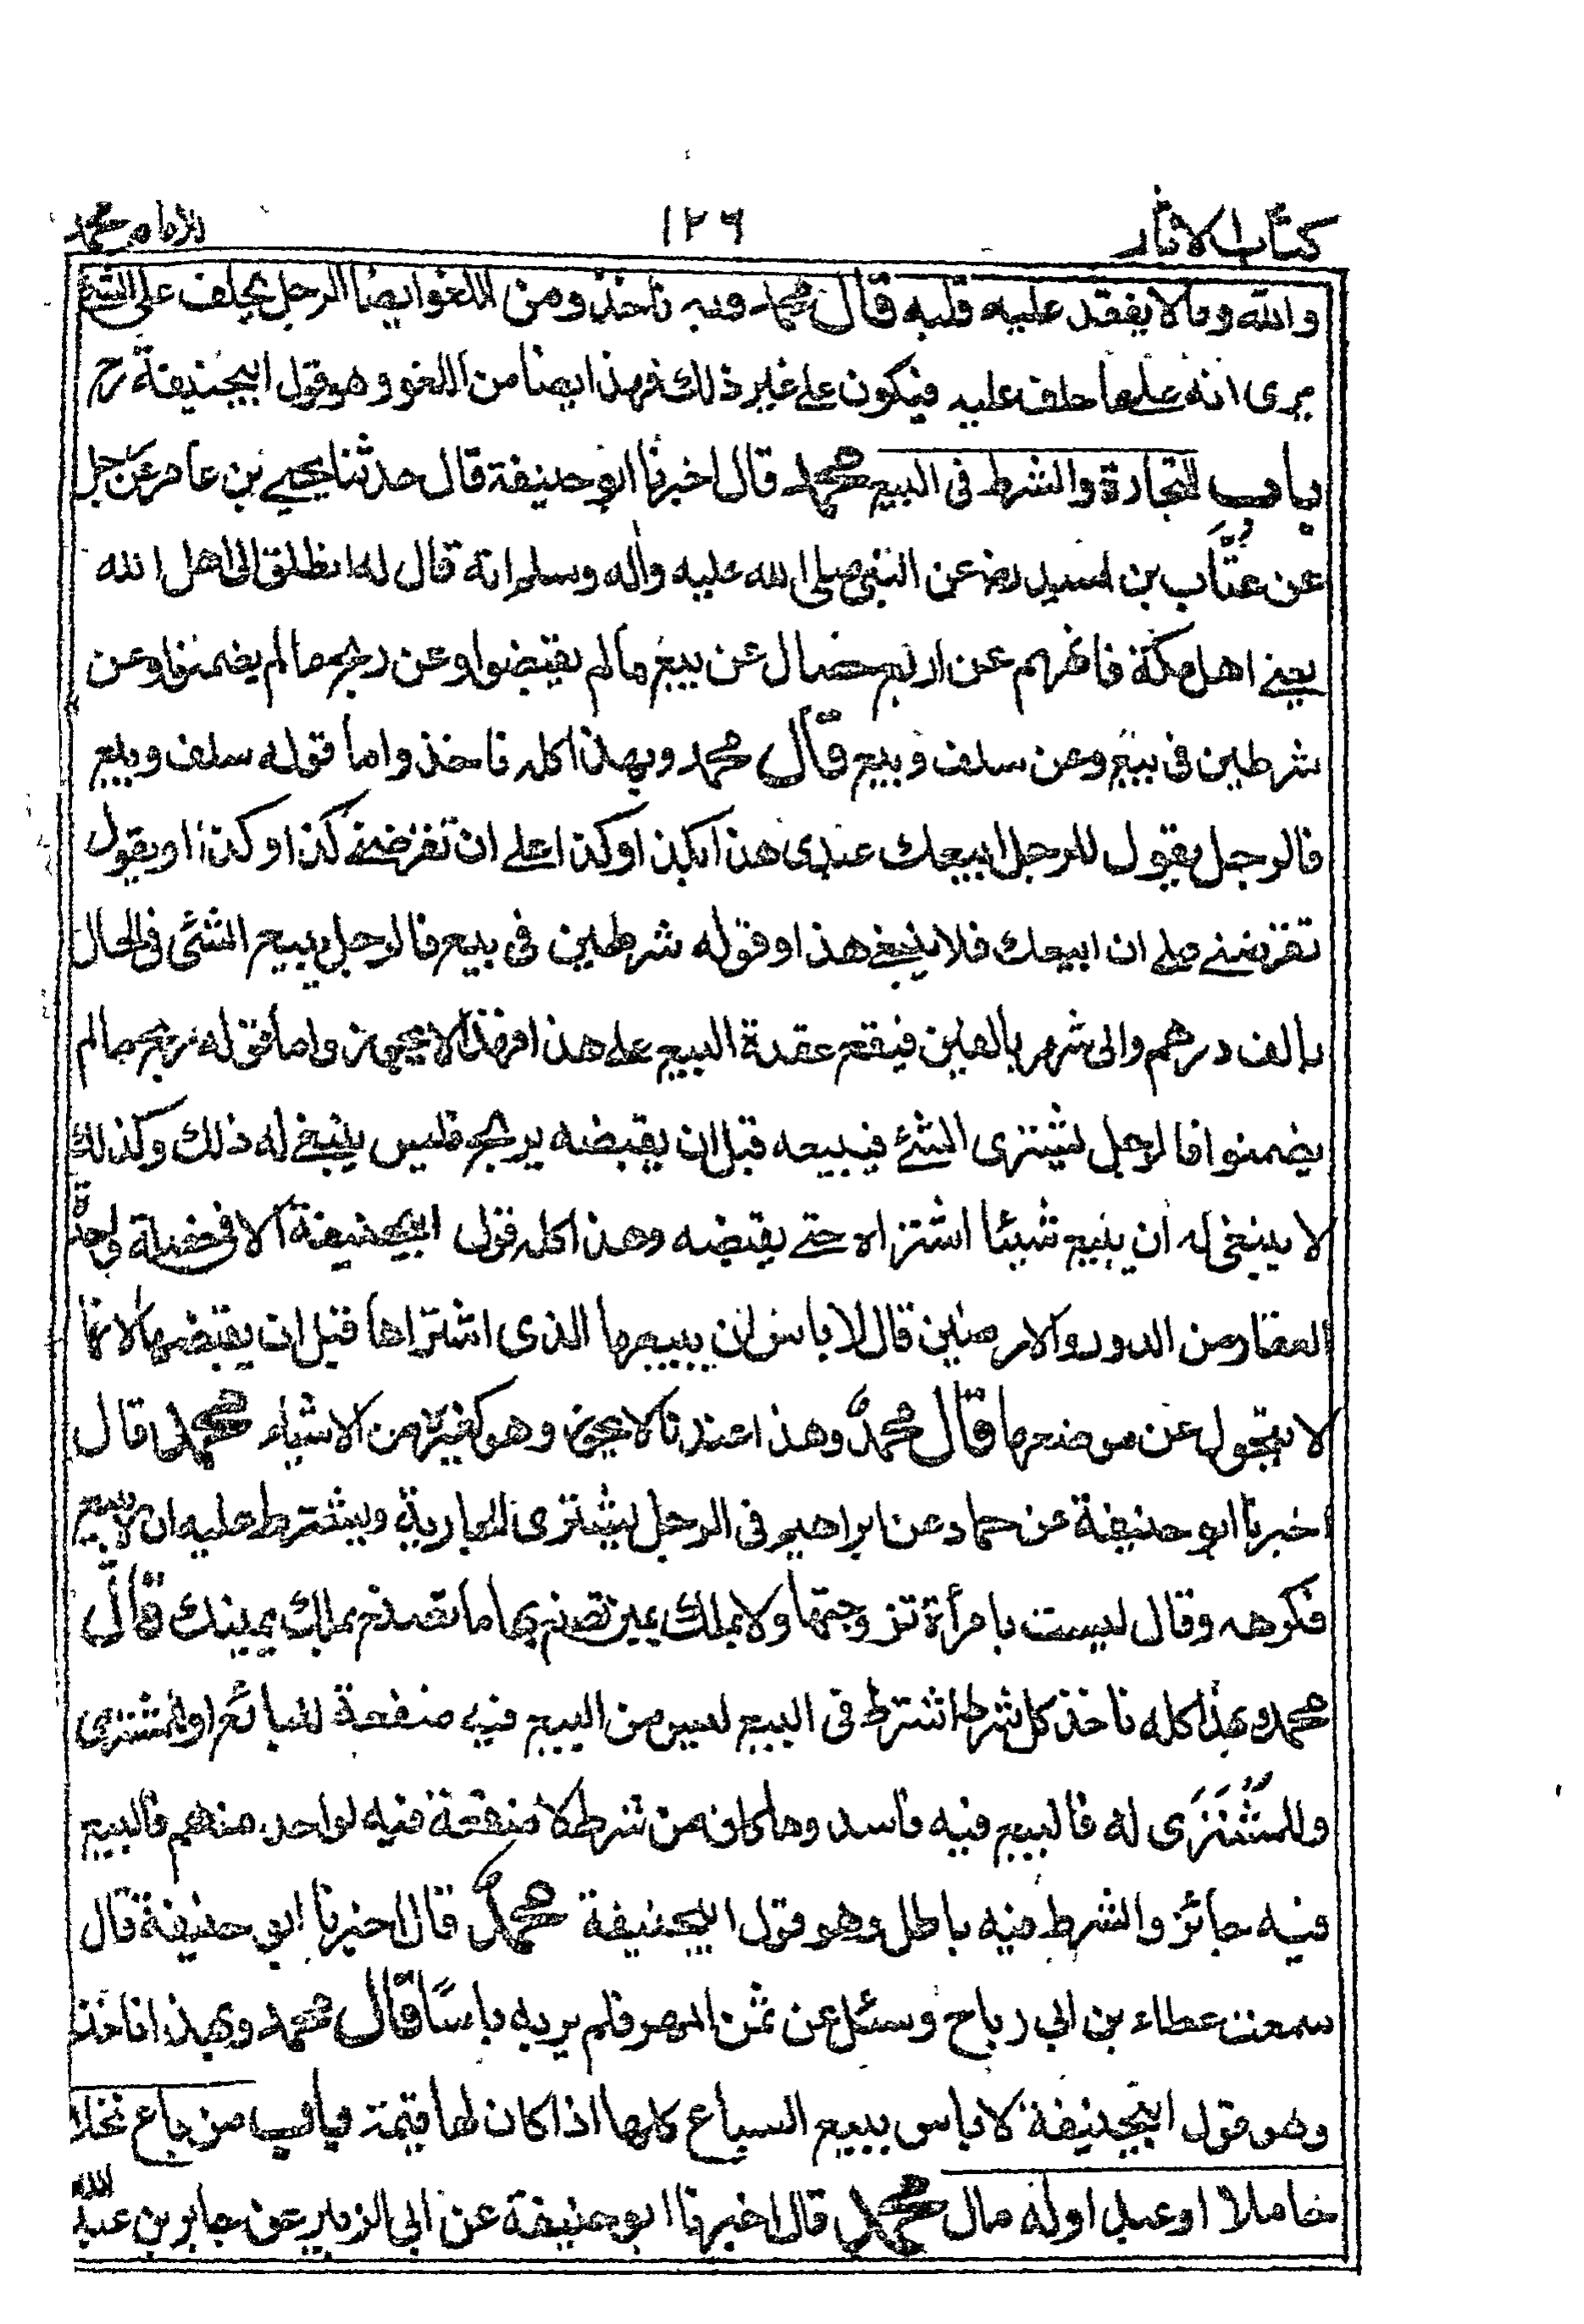 كتاب الاثار ١٢٦ للامام محمد
والله وما لا يعقد عليه قلبه قال محمد وبه ناخذ ومن اللغو ايضا الرجل يحلف على الشئ
يرى انه على ما حلف عليه فيكون على غير ذلك فهذا ايضا من اللغو وهو قول ابيحنيفة رح
باب التجارة والشرط فى البيع محمد قال اخبرنا ابو حنيفة قال حدثنا يحيى بن عامر عن رجل
عن عتاب بن اسيد رض عن النبي صلى الله عليه واله وسلم انه قال له انطلق الى اهل الله
يعنى اهل مكة فانههم عن اربع خصال عن بيع ما لم يقبضوا وعن ربح ما لم يضمنوا وعن
شرطين فى بيع وعن سلف وبيع قال محمد وبهذا كله ناخذ واما قوله سلف وبيع
فالرجل يقول للرجل ابيعك عبدى هذا بكذا وكذا على ان تقرضنى كذا وكذا او يقول
تقرضنى على ان ابيعك فلا ينبغى هذا وقوله شرطين فى بيع فالرجل يبيع الشئ فى الحال
بالف درهم والى شهر بالفين فيقع عقدة البيع على هذا فهذا لا يجوز واما قوله ربح ما لم
يضمنوا فالرجل يشترى الشئ فيبيعه قبل ان يقبضه بربح فليس ينبغى له ذلك وكذلك
لا ينبغى له ان يبيع شيئا اشتراه حتى يقبضه وهذا كله قول ابيحنيفة الا فى خصلة واحدة
العقار من الدور والارضين قال لا باس ان يبيعها الذى اشتراها قبل ان يقبضها لانها
لا تتحول عن موضعها قال محمد وهذا عندنا لا يجوز وهو كغيره من الاشياء محمد قال
اخبرنا ابو حنيفة عن حماد عن ابراهيم فى الرجل يشترى الجارية ويشترط عليه ان لا يبيع
فكرهه وقال ليست بامرأة تزوجتها ولا بملك يمين تصنع بها ما تصنع بملك يمينك قال
محمد وبهذا كله ناخذ كل شرط اشترط فى البيع ليس من البيع فيه منفعة للبائع او للمشترى
وللمشترى له فالبيع فيه فاسد وما كان من شرط لا منفعة فيه لواحد منهم فالبيع
فيه جائز والشرط فيه باطل وهو قول ابيحنيفة محمد قال اخبرنا ابو حنيفة قال
سمعت عطاء بن ابي رباح وسئل عن ثمن الهر فلم ير به باسا قال محمد وبهذا ناخذ
وهو قول ابيحنيفة لا باس ببيع السباع كلها اذا كان لها قيمة باب من باع نخلا
حاملا او عبدا وله مال محمد قال اخبرنا ابو حنيفة عن ابي الزبير عن جابر بن عبد الله